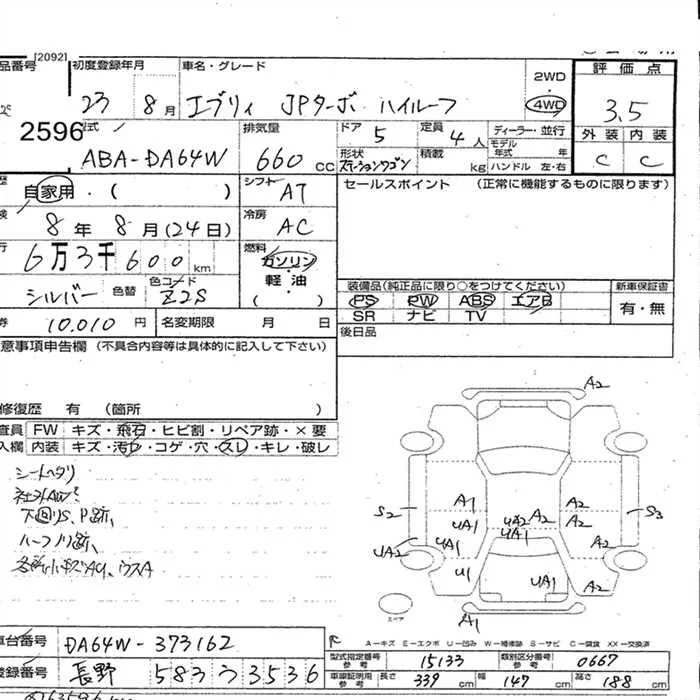 [2092]
品番号 初度登録年月 車名・グレード 2WD 評価点
23 8月 エブリィ JPターボ ハイルーフ 4WD 3.5
2596 型式 排気量 ドア 定員 ディーラー・並行 外装 内装
5 4人 モデル年式 年
ABA-DA64W 660cc 形状 ステーションワゴン 積載 kg ハンドル 左・右 C C
歴 自家用・( ) シフト AT セールスポイント (正常に機能するものに限ります)
検 8年 8月(24日) 冷房 AC
行 6万3千600km 燃料 ガソリン・軽油 ( )
シルバー 色替 色コード Z2S
装備品(純正品に限り○をつけてください) 新車保証書
PS PW ABS エアB 有・無
SR ナビ TV
券 10,010円 名変期限 月 日 後日品
意事項申告欄 (不具合内容等は具体的に記入して下さい)
修復歴 有 (箇所 )
査員 FW キズ・飛石・ヒビ割・リペア跡・×要
入欄 内装 キズ・汚レ・コゲ・穴・スレ・キレ・破レ
シートヘタリ
社外AW
下回りS、P跡、
ハーフノリ跡、
A2
S2 A1 A2 S3
UA1 UA2 A2 A2
UA2 UA1 UA1 A2
U1 UA1 A2
A1
スペア
A-キズ E-エクボ U-凹み W-補修跡 S-サビ C-腐食 XX-交換済
車台番号 DA64W-373162
登録番号 長野 583 う 3536
型式指定番号 参考 15133 類別区分番号 参考 0667
車庫証明用 参考 長さ 339cm 幅 147cm 高さ 188cm